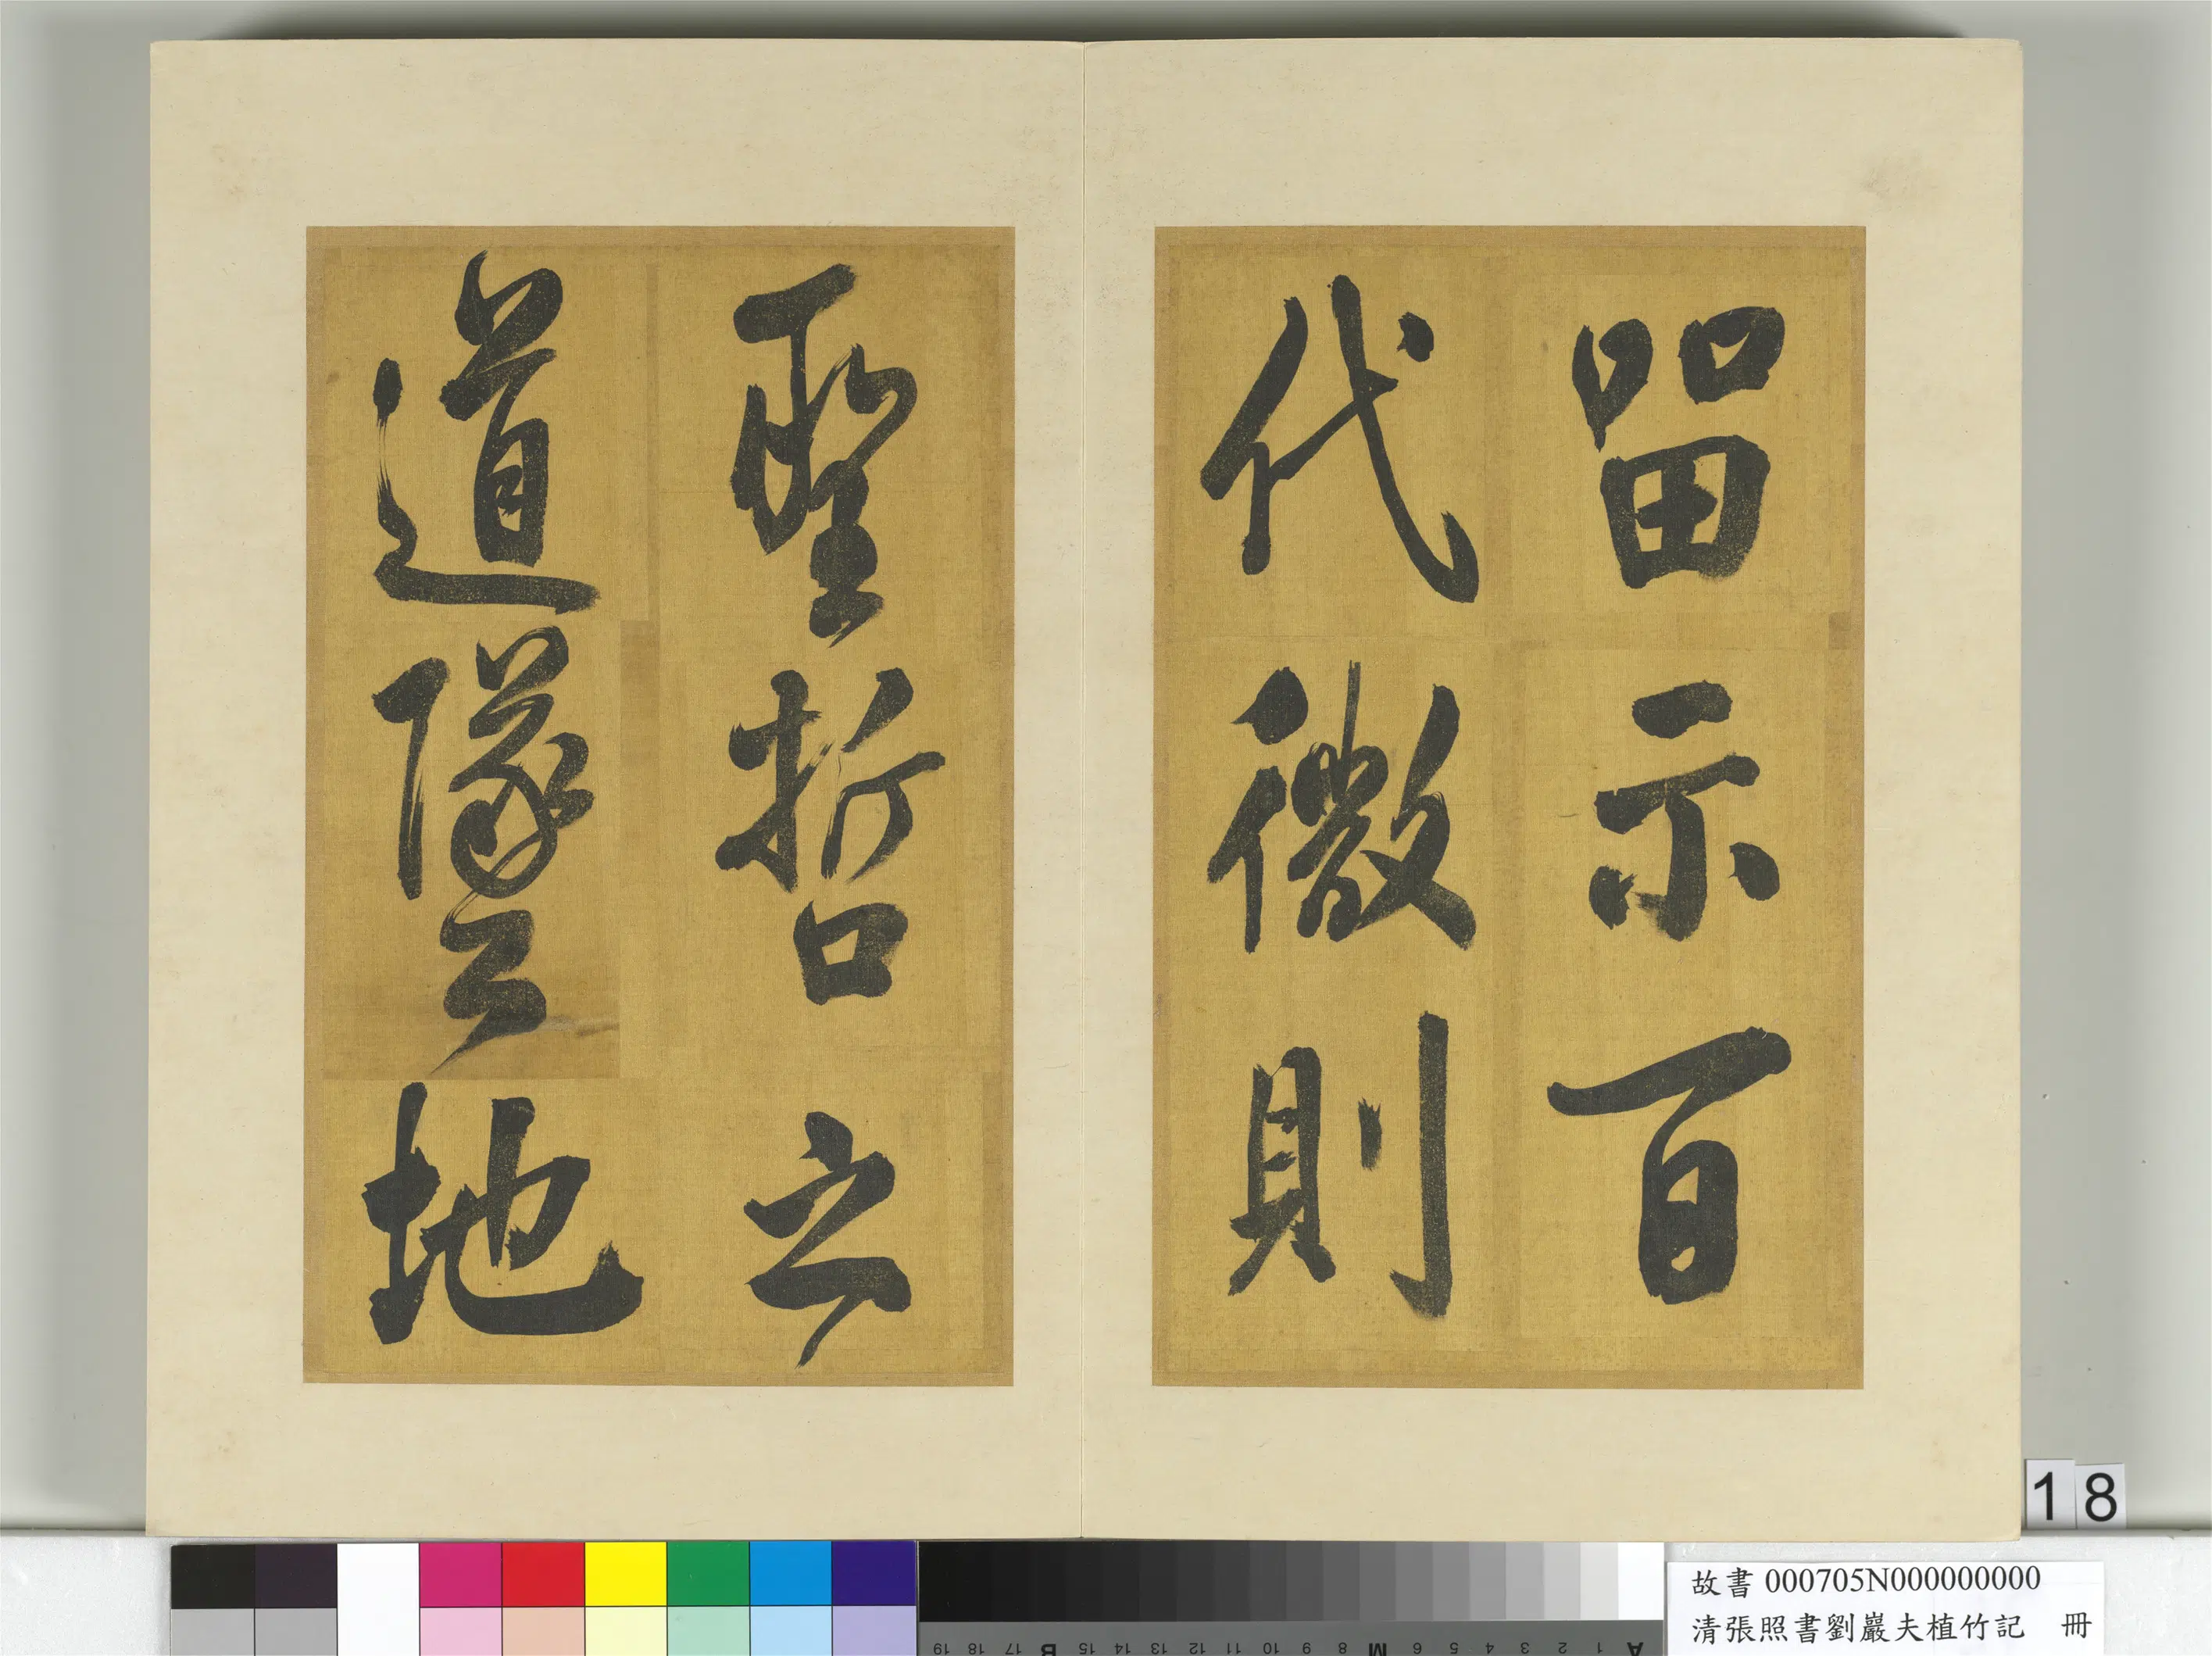 留示百
代微則
聖哲之
道墜地
18
故書 000705N000000000
清張照書劉巖夫植竹記 冊
A 1 2 3 4 5 6 M 8 9 10 11 12 13 14 15 B 17 18 19